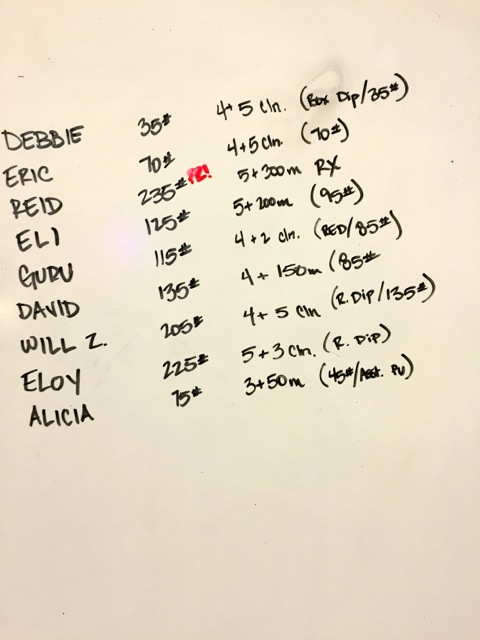 DEBBIE 35# 4+5 Cln. (Box Dip/35#)
ERIC 70# 4+5 Cln (70#)
REID 235# PR! 5+300m RX
ELI 125# 5+200m (95#)
GURU 115# 4+2 Cln. (RED/85#)
DAVID 135# 4+ 150m (85#
WILL Z. 205# 4+ 5 Cln (R. Dip/135#)
ELOY 225# 5+3 Cln. (R. Dip)
ALICIA 75# 3+50m (45#/Asst. PU)